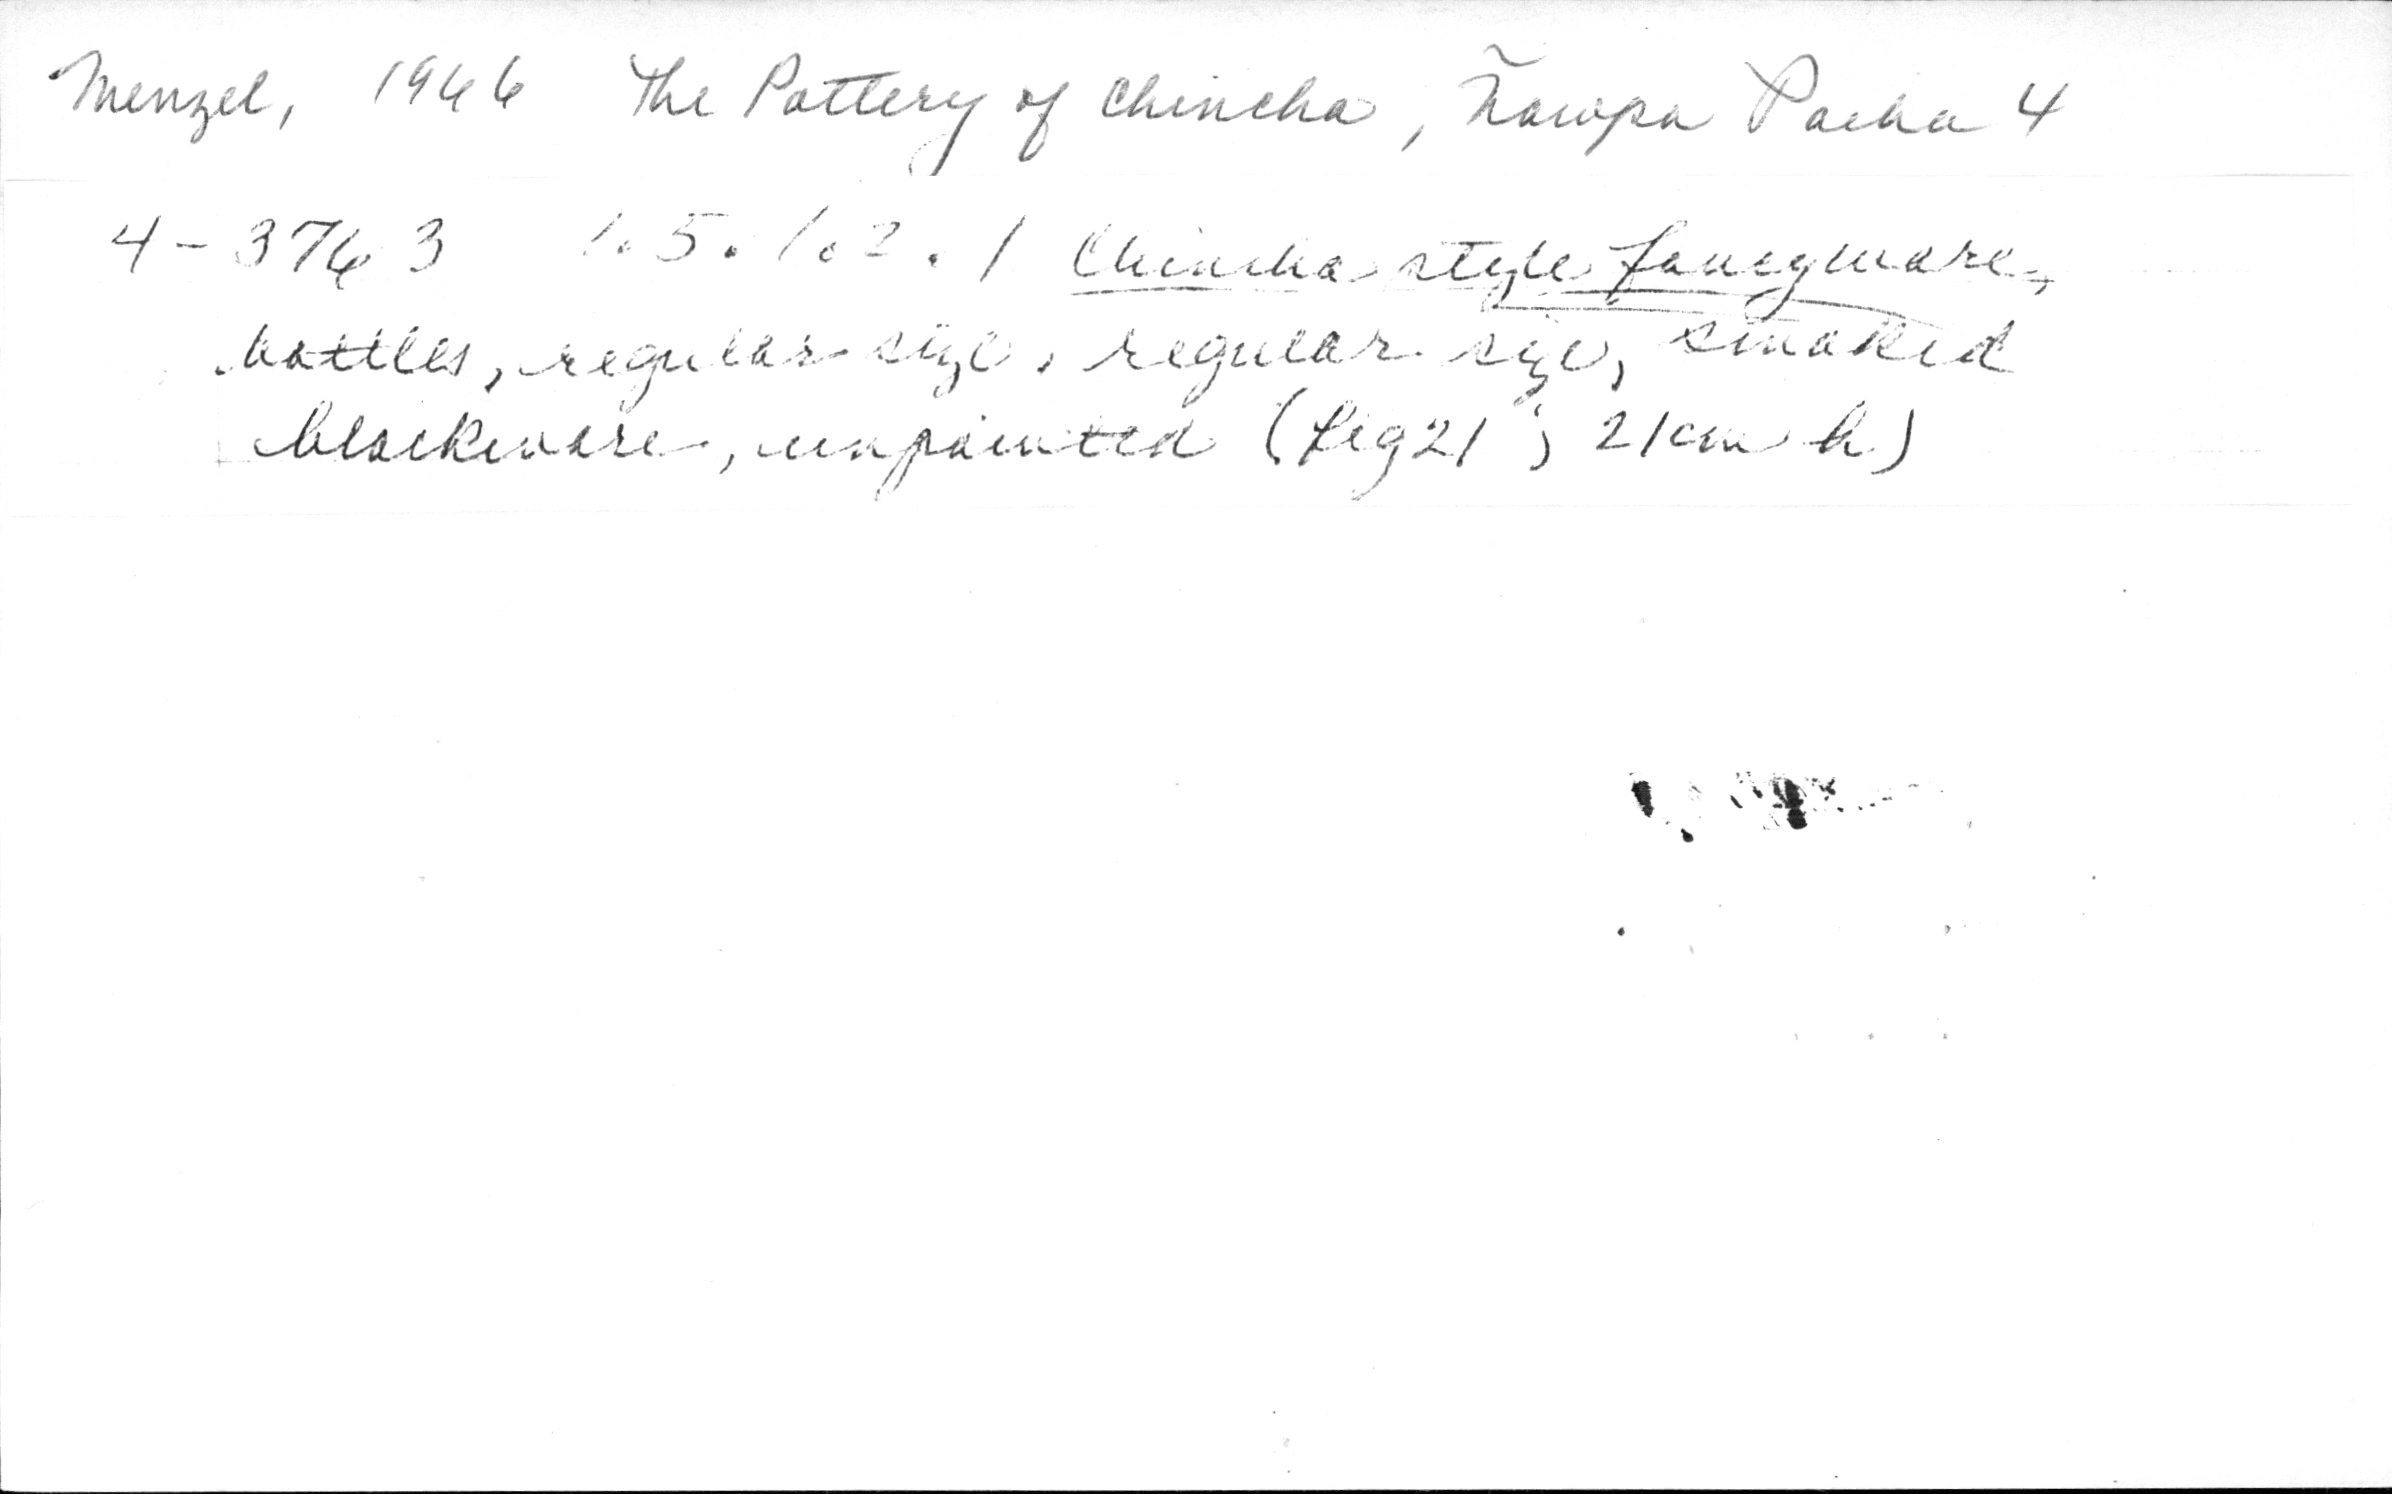 Menzel, 1966 The Pottery of Chincha, Ñawpa Pacha 4
4-3763 1.5.1.2.1 Chincha style fancyware,
bottles, regular size, regular size, smoked
blackware, unpainted (fig 21; 21cm h)